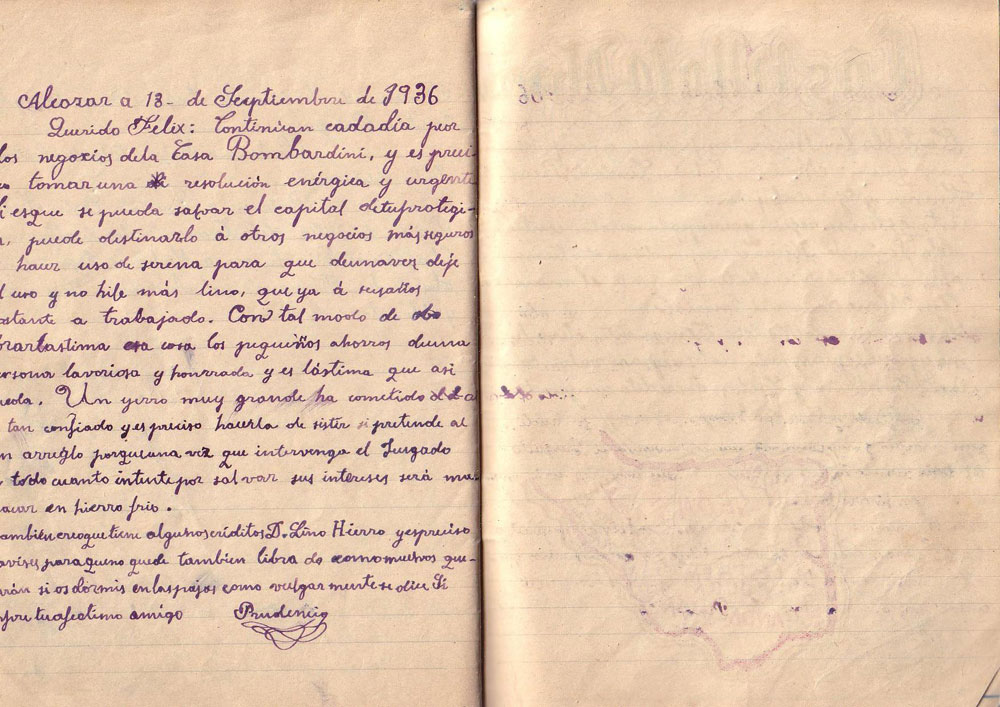 Alcozar a 18- de Septiembre de 1936
Querido Felix: Continuan cadadia peor
los negocios dela Casa Bombardini, y es preci-
tomar una resolución enérgica y urgente
i esque se pueda salvar el capital detuprotegi-
, puede destinarlo á otros negocios más seguros
hacer uso de serena para que deunavez deje
l uso y no hile más lino, que ya á susaños
astante a trabajado. Con tal modo de obo
esa cosa los pequeiños ahorros deuna
ersona lavoriosa y honrrada y es lástima que asi
ueda. Un yerro muy grande ha cometido
tan confiado y es preciso hacerla de sistir si pretende al
un arreglo porqueuna vez que intervenga el Jusgado
todo cuanto intente por sal var sus intereses será ma-
acar en hierro frio.
ambién creoque tiene algunoscréditos D. Lino Hierro yespreciso
avises paraqueno quede tambien libra do comomuchos que-
rán si os dormis enlaspajas como vulgar mente se dice Si
mpre tuafectimo amigo Prudencio